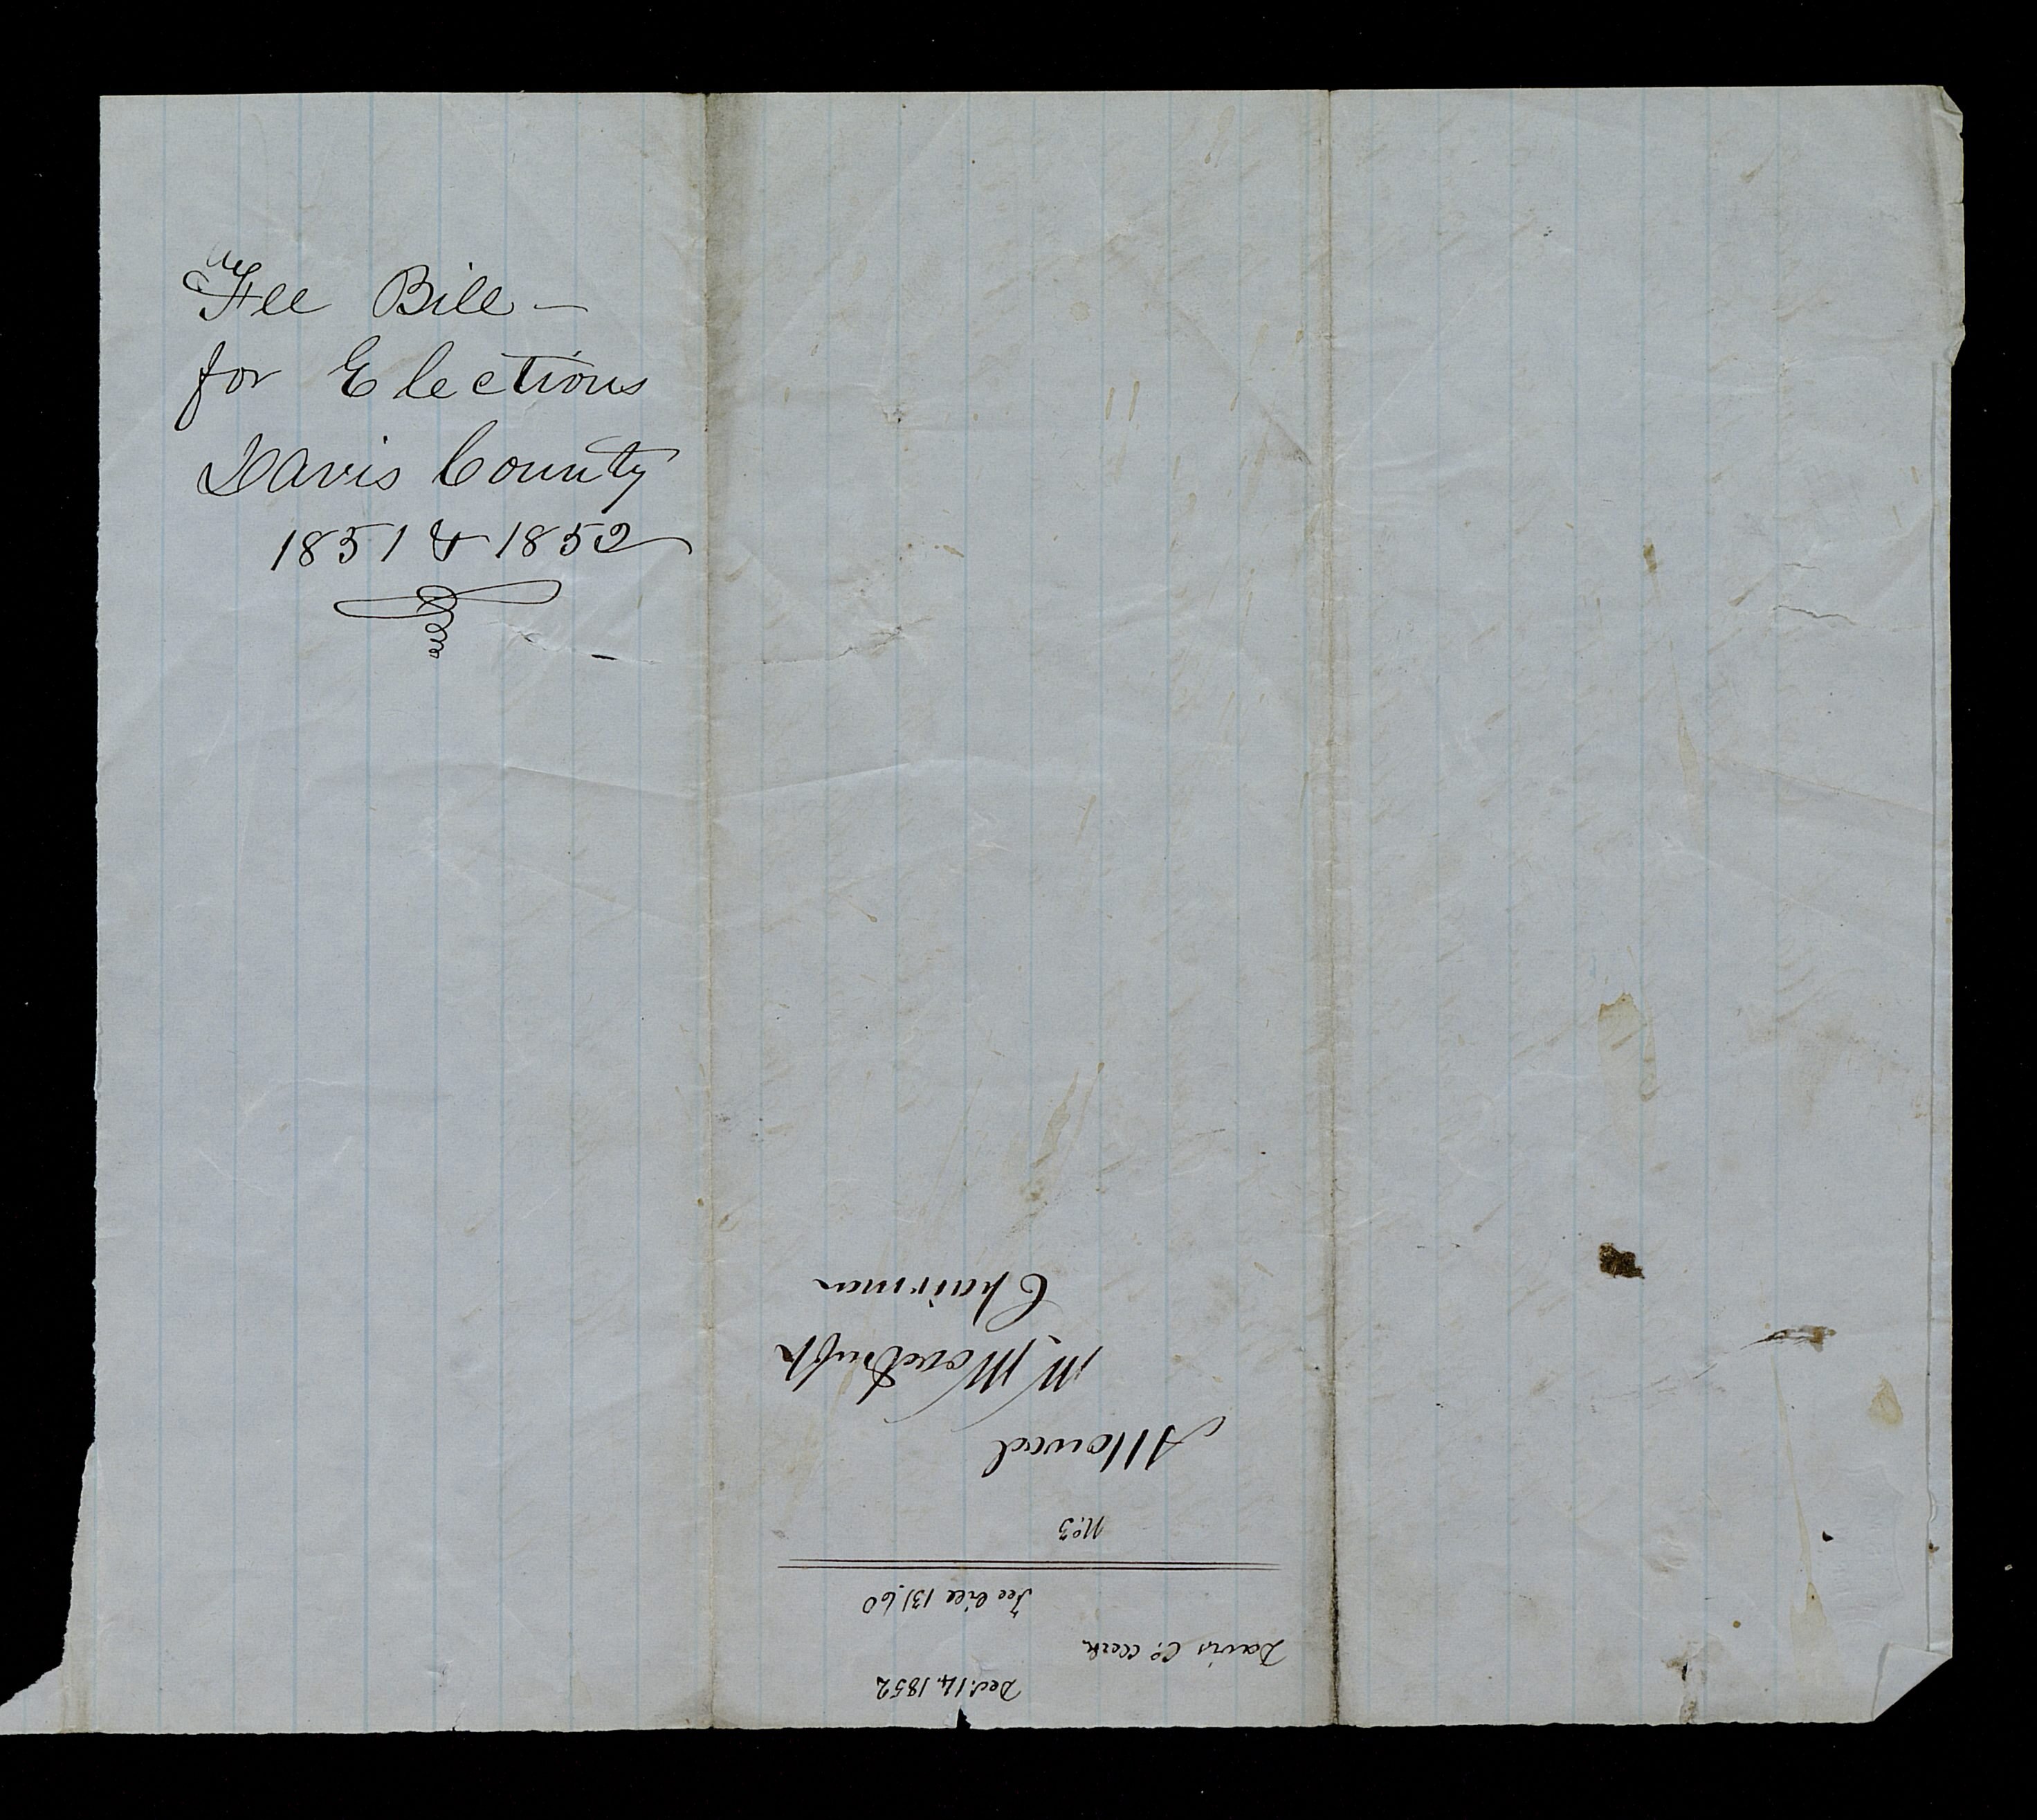 Fee Bill —
for Elections
Davis County
1851 & 1852
Dec. 14. 1852
Davis Co. Clerk
Fee bill 131,60
No. 3
Allowed
Chairman